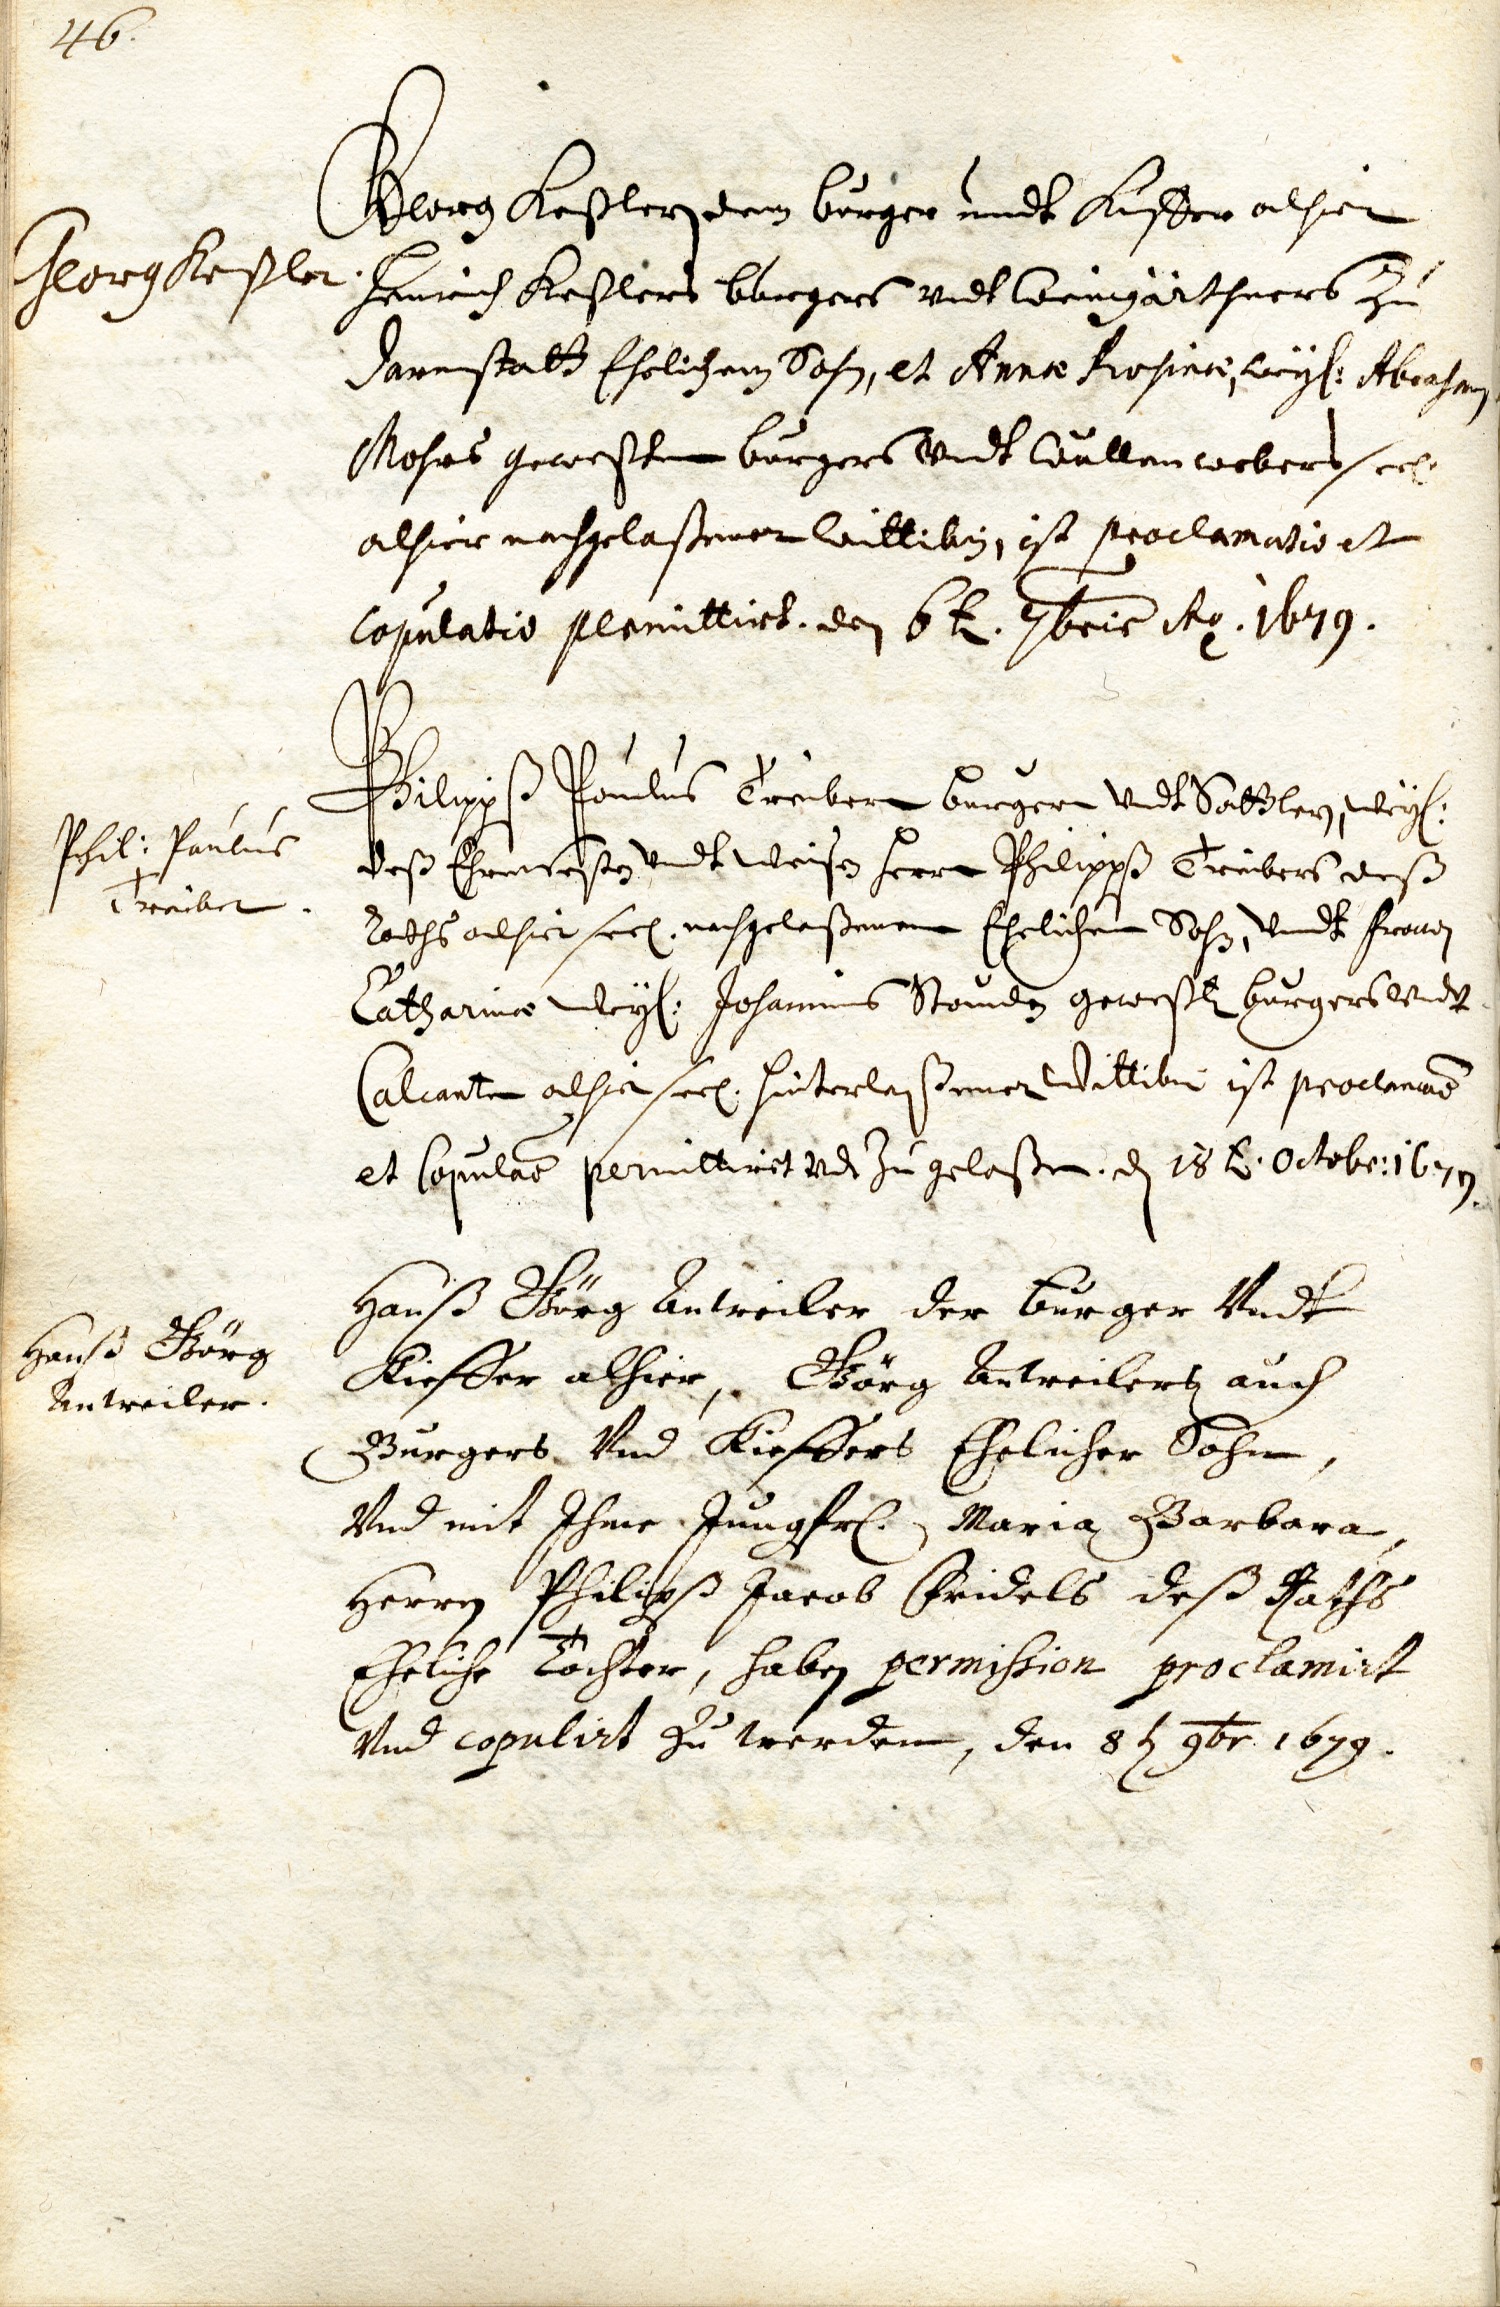 46.
Georg Keßler.
Georg Keßlern dem burger undt Kieffer alhier
Henrich Keßlers burgers vndt Weingärthners Zu
Darmstatt Ehelichem Sohn, et Annæ Rosinæ, weyl: Abraham
Mohrs geweßten burgers Vndt Wullenwebers seel.
alhier nachgelaßener Wittibin, ist proclamatio et
copulatio permittirt. den 6t. 7bris Ao. 1679.
Phil: Paulus
Treiber.
Philipß Paulus Treibern burgern Vndt Sattlern, weyl:
deß Ehrnvesten Vndt weisen Herrn Philippß Treibers deß
Raths alhier seel. nachgelaßenem Ehelichem Sohn, Vndt Frauen
Catharinæ weyl: Johannis geweßten burgers Vndt
Calcanten alhier seel. hinterlaßener Wittibin ist proclamaõ
et Copulaõ permittiret Vndt Zugelaßen. den 18t. Octobr: 1679.
Hanß Görg
Antweiler.
Hanß Görg Antweiler der burger Vndt
Kieffer alhier, Görg Antweilers auch
Burgers Vnd Kieffers Ehelicher Sohn,
Vnd mit Ihme Jungfr. Maria Barbara,
Herrn Philipß Jacob Fridels deß Raths
Eheliche Tochter, haben permission proclamirt
Vnd copulirt Zu werden, den 8t 9br 1679.